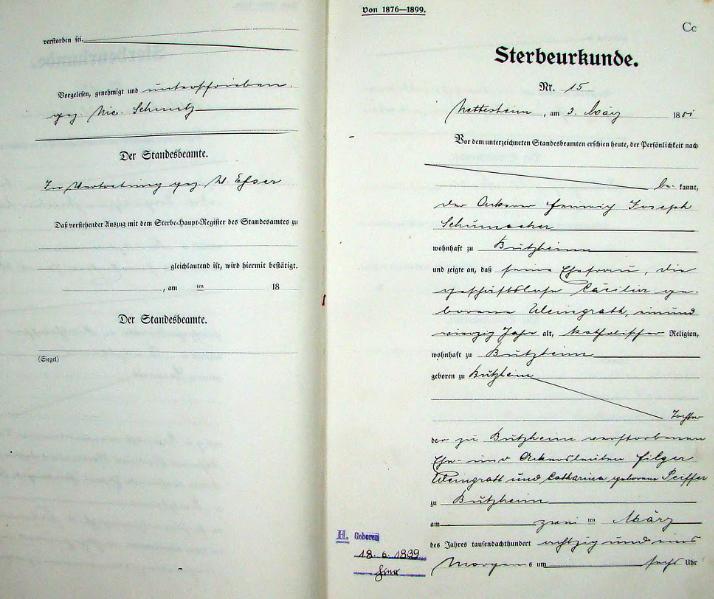 verstorben sei.
Vorgelesen, genehmigt und unterschrieben
gez Nic. Schmitz
Der Standesbeamte.
In Vertretung gez W. Esser
Daß vorstehender Auszug mit dem Sterbe-Haupt-Register des Standesamtes zu
gleichlautend ist, wird hiermit bestätigt.
, am ten 18
Der Standesbeamte.
(Siegel)
Von 1876—1899.
Cc
Sterbeurkunde.
Nr. 15
Nettesheim, am 3. März 1881
Vor dem unterzeichneten Standesbeamten erschien heute, der Persönlichkeit nach
be kannt,
der Ackerer Joseph
Schumacher
wohnhaft zu Bützheim
und zeigte an, daß seine Ehefrau, die
geschäftslose Cäcilia ge-
borene Weingratt, einund
vierzig Jahre alt, katholischer Religion,
wohnhaft zu Bützheim
geboren zu Bützheim
Tochter
der zu Bützheim verstorbenen
Ehe- und Ackersleuten Hilger
Weingratt und Catharina geborene Peiffer
zu Bützheim
am zwei ten März
des Jahres tausendachthundert achtzig und eins
Morgens um sechs Uhr
H. Geboren
18. 6. 1839